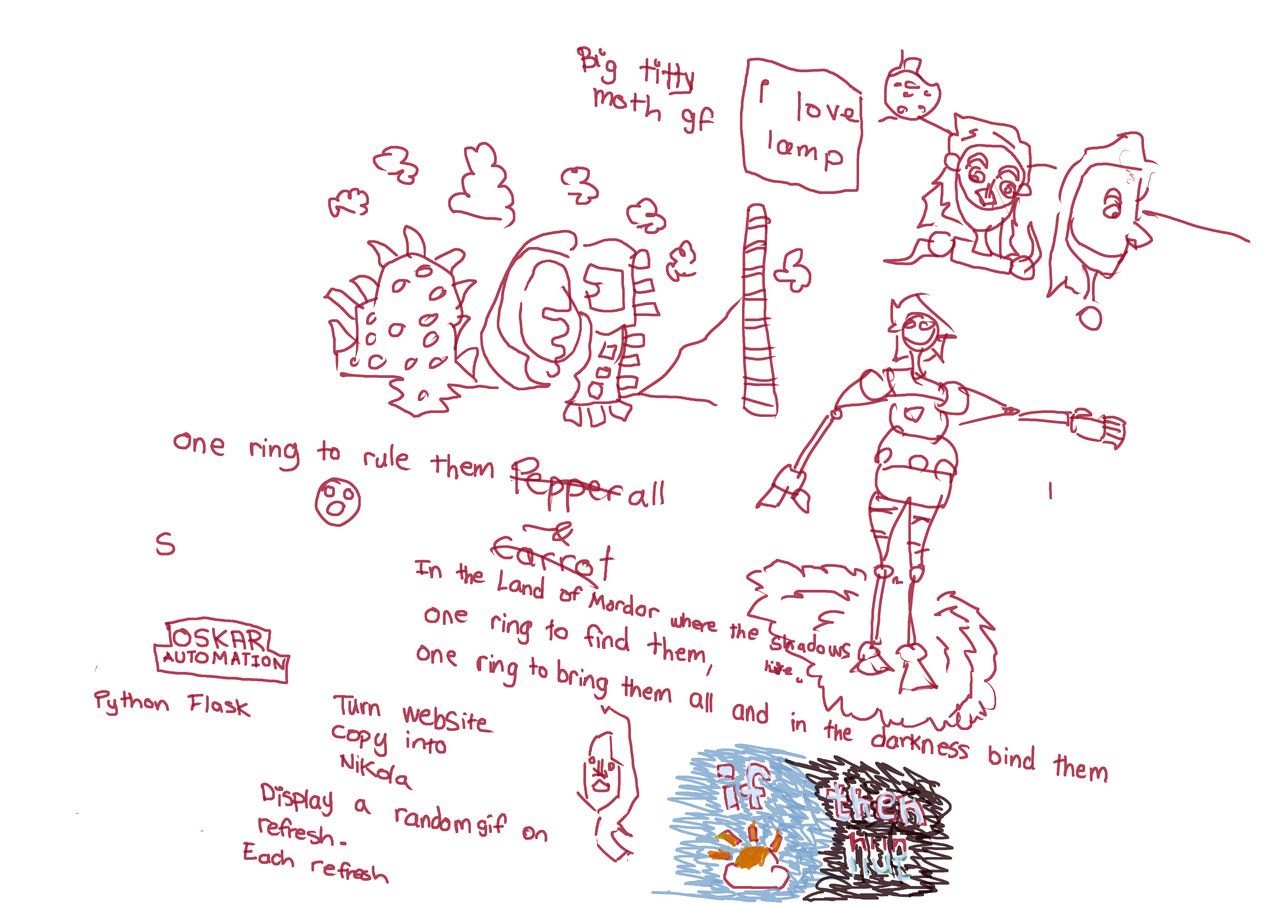 Big titty
moth gf
I love
lamp
One ring to rule them Pepper all
&
Carrot
S
In the Land of Mordor where the shadows
one ring to find them,
one ring to bring them all and in the darkness bind them
OSKAR
AUTOMATION
Python Flask
Turn website
copy into
Nikola
Display a random gif on
refresh.
Each refresh
if then